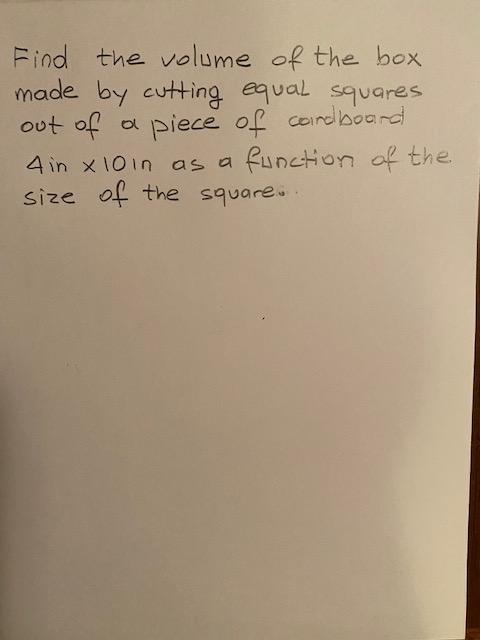 Find the volume of the box
made by cutting equal squares
out of a piece of cardboard
4in x 10in as a function of the
size of the square.